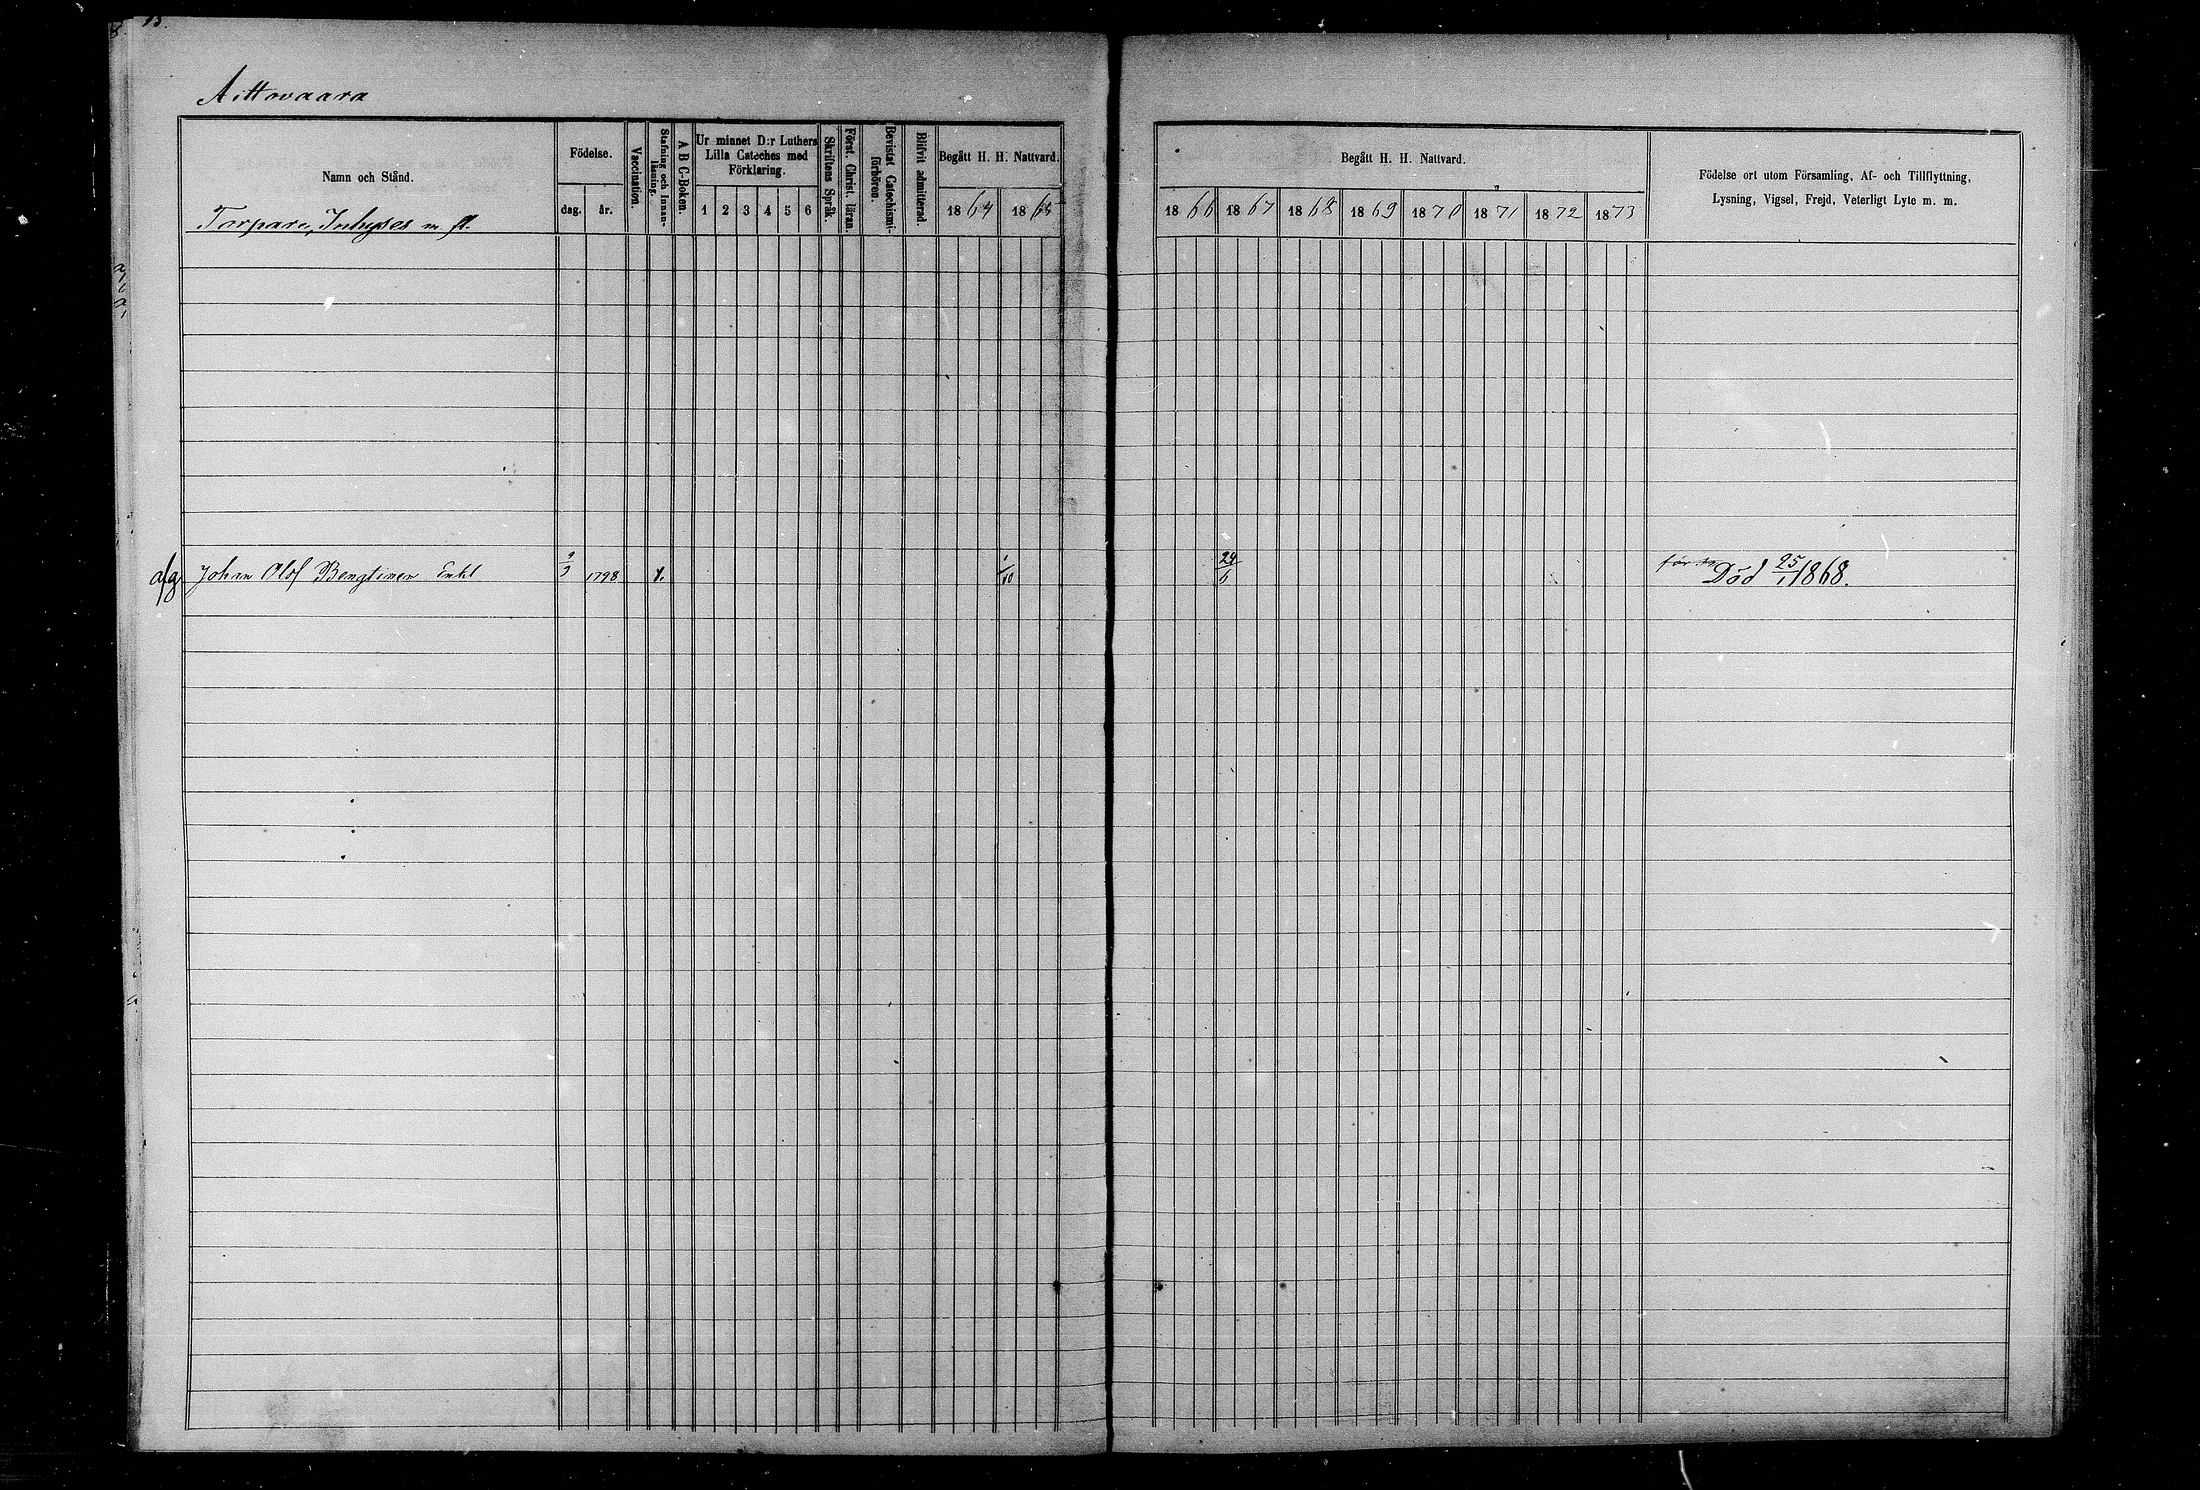 13.
Aittovaara
Namn och Stånd.
Födelse.
dag. år.
Vaccination.
Stafning och Innanläsning.
A B C-Boken.
Ur minnet D:r Luthers Lilla Cateches med Förklaring.
1 2 3 4 5 6
Skriftens Språk.
Först. Christ. läran.
Bevistat Catechismiförhören.
Blifvit admitterad.
Begått H. H. Nattvard.
1864 1865
Begått H. H. Nattvard.
1866 1867 1868 1869 1870 1871 1872 1873
Födelse ort utom Församling, Af- och Tillflyttning,
Lysning, Vigsel, Frejd, Veterligt Lyte m. m.
Torpare, Inhyses m fl.
afg Johan Olof Bengtinen Enkl 9/9 1798 1/10 24/6 Död 25/1 1868.